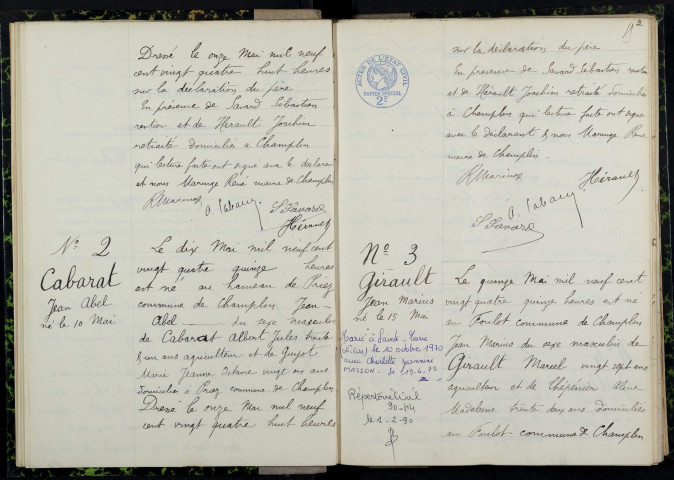 Dressé le onze Mai mil neuf
cent vingt quatre huit heures
sur la déclaration du père
En présence de Savard Sébastien
rentier et de Hérault Joachim
retraité domiciliés à Champlin
qui lecture faite ont signé avec le déclarant
et nous Maringe René maire de Champlin
A. Cabarat
S Savard
Hérault
No 2
Cabarat
Jean Abel
né le 10 Mai
Le dix Mai mil neuf cent
vingt quatre quinze heures
est né au hameau de
commune de Champlin Jean
Abel du sexe masculin
de Cabarat Albert Jules trente
& un ans agriculteur et de Guyot
Marie Jeanne Octavie vingt six ans
domiciliés à commune de Champlin
Dressé le onze Mai mil neuf
cent vingt quatre huit heures
ACTES DE L'ETAT CIVIL
PAPIER SPECIAL
2F
sur la déclaration du père
En présence de Savard Sébastien rentier
et de Hérault Joachim retraité domiciliés
à Champlin qui lecture faite ont signé
avec le déclarant & nous Maringe René
maire de Champlin
Hérault
A. Cabarat
S Savard
No 3
Girault
Jean Marius
né le 15 Mai
Marié à Sainte Marie
(Nièvre) le 10 octobre 1970
avec Charlotte
MASSON
Répertoire Civil
le 1-2-90
Le quinze Mai mil neuf cent
vingt quatre quinze heures est né
au Foulot commune de Champlin
Jean Marius du sexe masculin de
Girault Marcel vingt sept ans
agriculteur et de
Madeleine trente deux ans domiciliés
au Foulot commune de Champlin